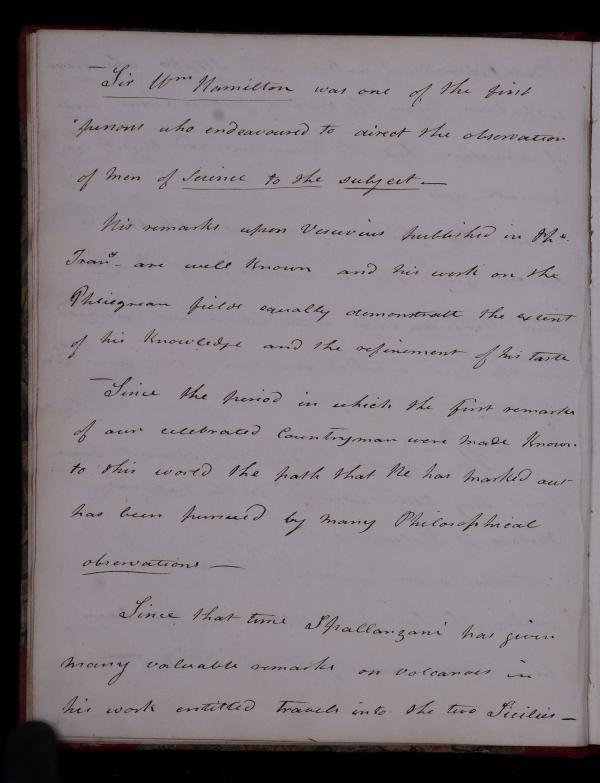 — Sir Wm Hamilton was one of the first
persons who endeavoured to direct the observation
of Men of Science to the subject —
His remarks upon Vesuvius published in Phe.
Trans - are well Known and his work on the
Phlegrean fields equally demonstrate the extent
of his Knowledge and the refinement of his taste
— Since the period in which the first remarks
of our celebrated Countryman were made Known
to this world the path that He has marked out
has been pursued by many Philosophical
observations —
Since that time Spallanzani has given
many valuable remarks on volcanoes in
his work entitled travels into the two Sicilies —